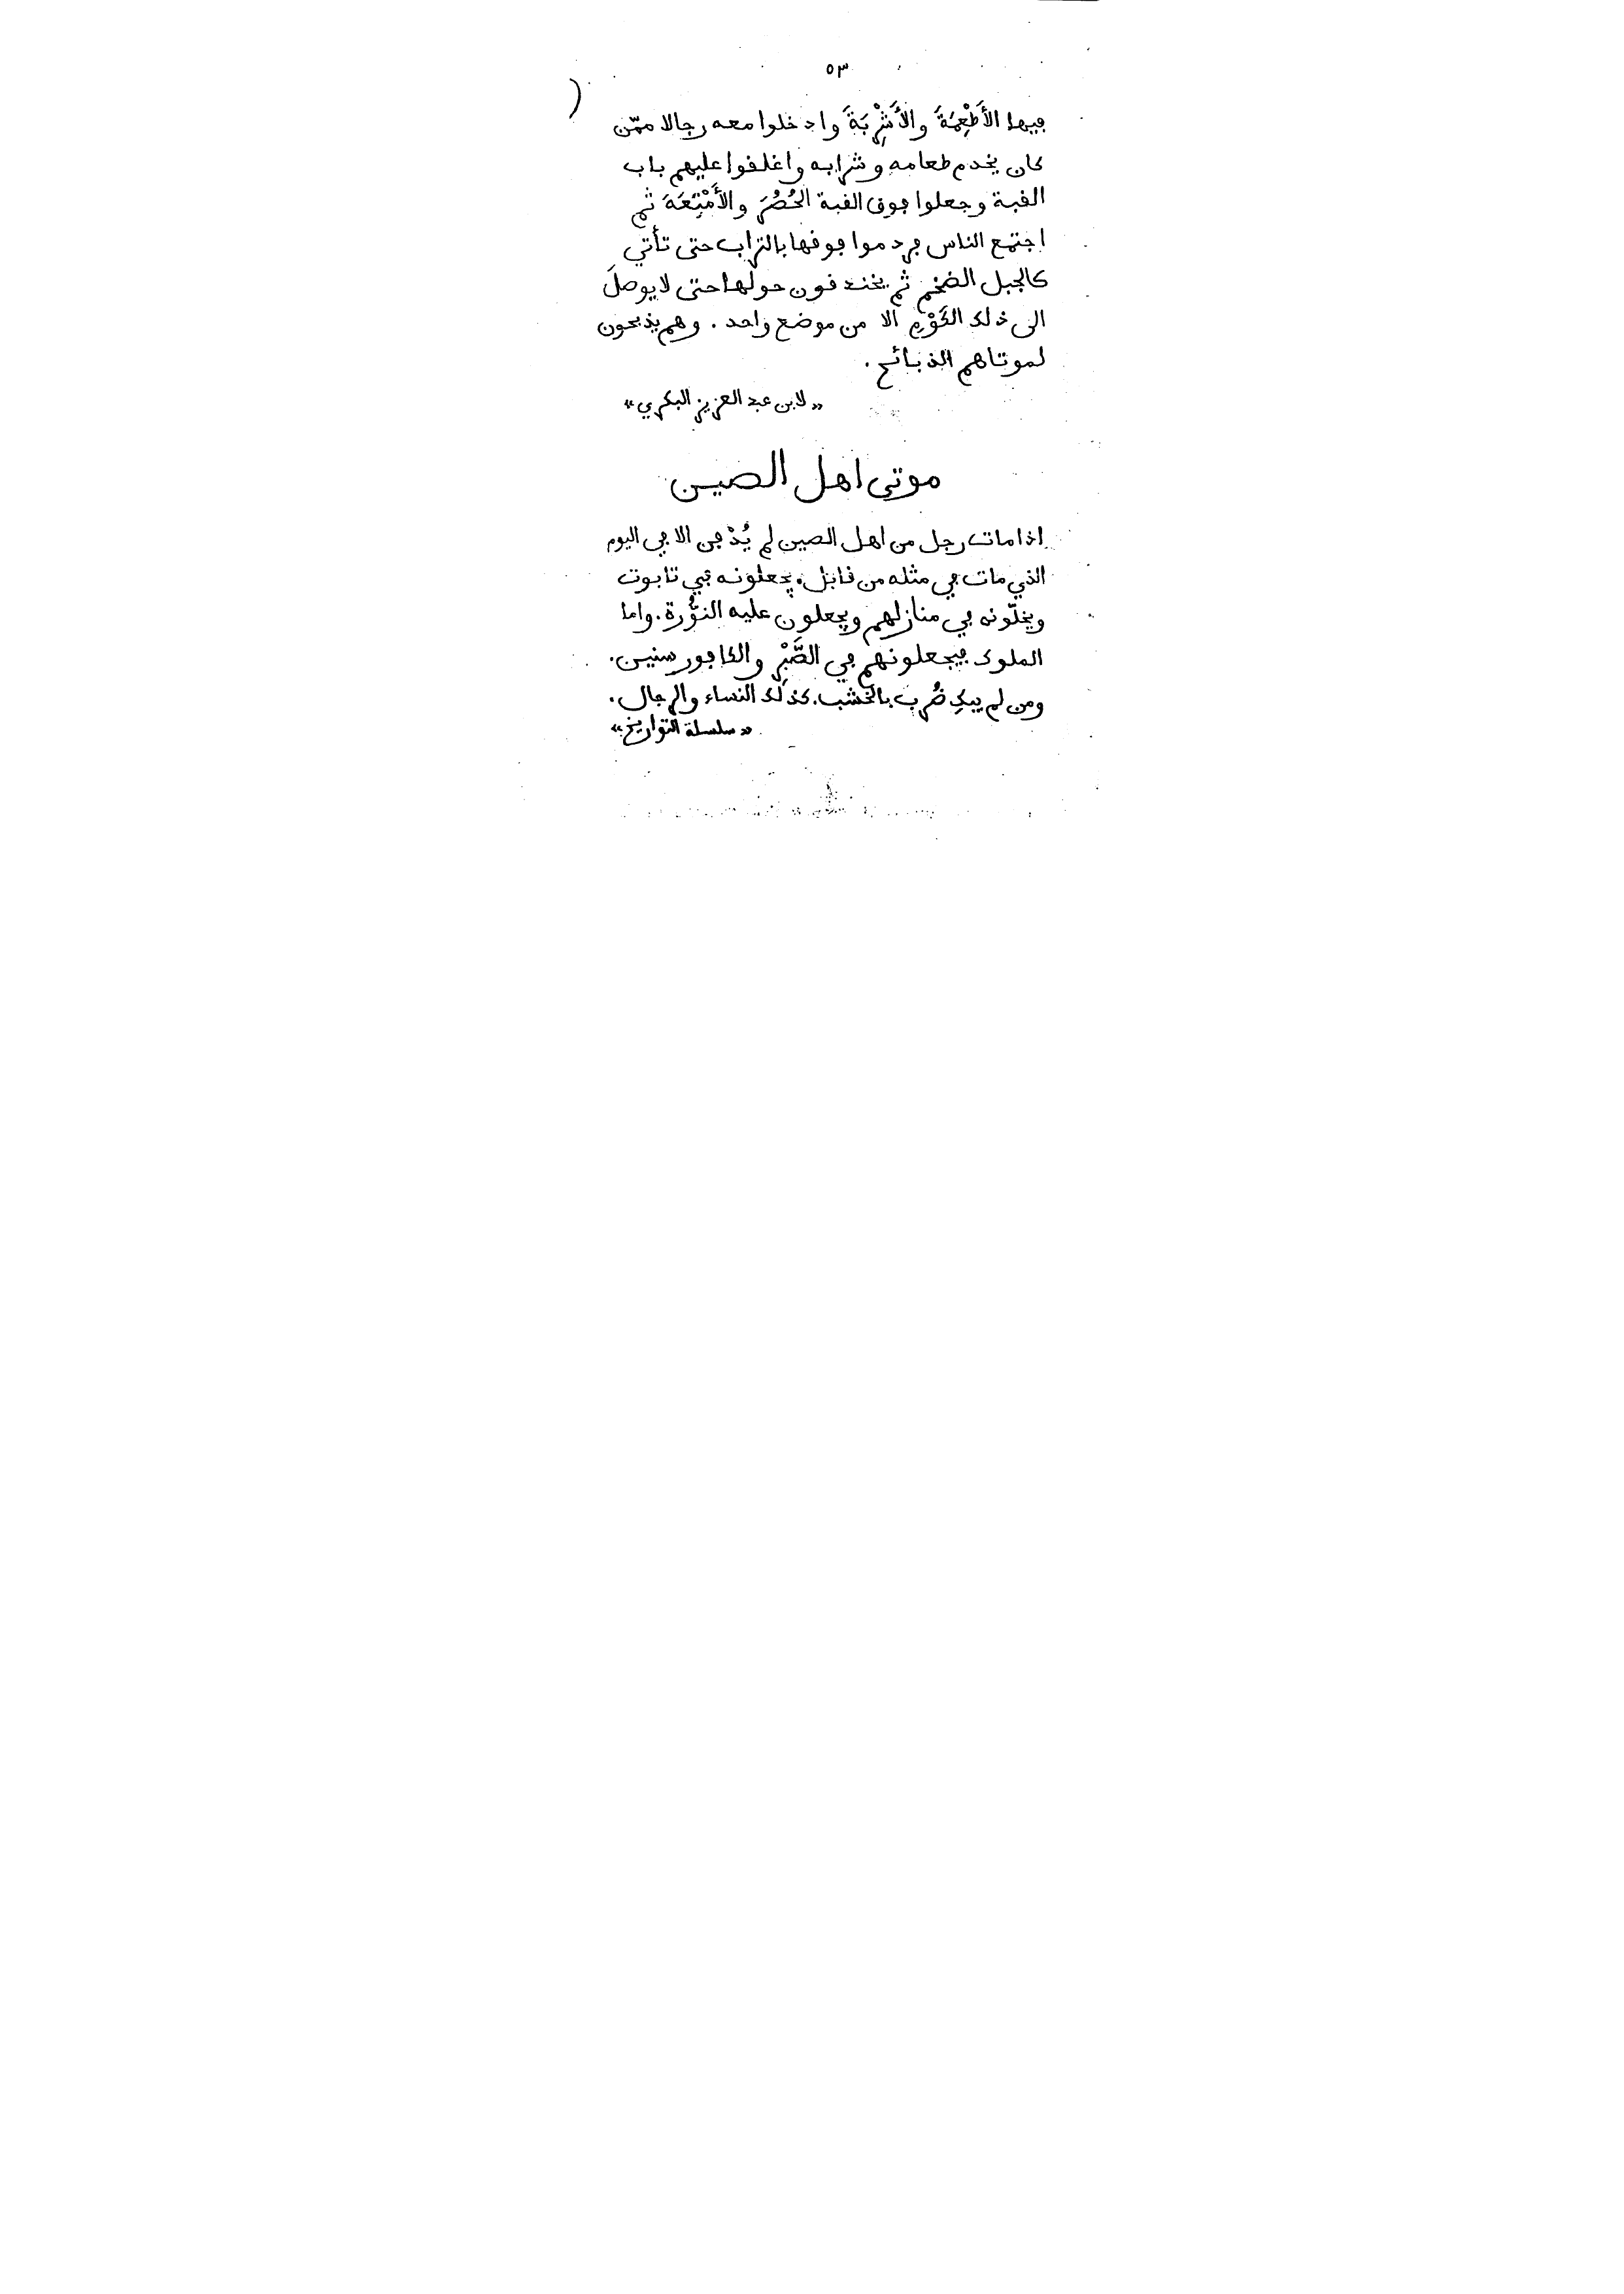 ٥٣
فيها الأَطْعِمَةَ والأَشْرِبَةَ وادخلوا معه رجالا ممّن
كان يخدم طعامه وشرابه واغلقوا عليهم باب
القبة وجعلوا فوق القبة الحُصُرَ والأَمْتِعَةَ ثم
اجتمع الناس فردموا فوقها بالتراب حتى تأتي
كالجبل الضخم ثم يخندقون حولها حتى لا يوصلَ
الى ذلك الكَوْمِ الا من موضع واحد . وهم يذبحون
لموتاهم الذبائح .
«لابن عبد العزيز البكري»
موتى اهل الصين
اذا مات رجل من اهل الصين لم يُدْفن الا في اليوم
الذي مات في مثله من قابل. يجعلونه في تابوت
ويخلّونه في منازلهم ويجعلون عليه النُّورة. واما
الملوك فيجعلونهم في الصَّبْرِ والكافور سنين.
ومن لم يبكِ ضُرِب بالخشب. كذلك النساء والرجال.
«سلسلة التواريخ»